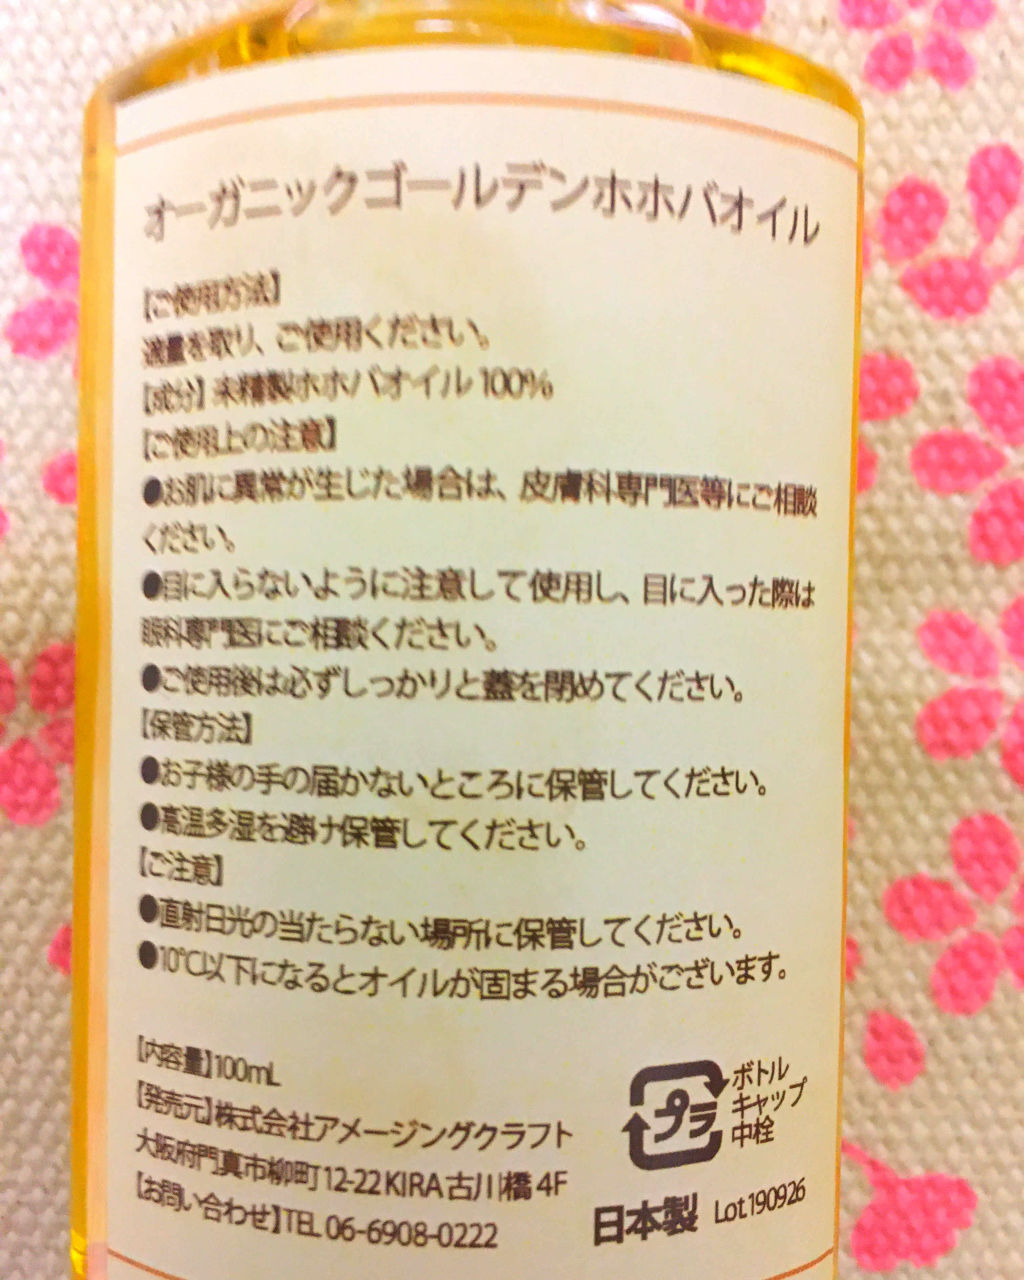 オーガニックゴールデンホホバオイル
【ご使用方法】
適量を取り、ご使用ください。
【成分】未精製ホホバオイル100%
【ご使用上の注意】
●お肌に異常が生じた場合は、皮膚科専門医等にご相談
ください。
●目に入らないように注意して使用し、目に入った際は
眼科専門医にご相談ください。
●ご使用後は必ずしっかりと蓋を閉めてください。
【保管方法】
●お子様の手の届かないところに保管してください。
●高温多湿を避け保管してください。
【ご注意】
●直射日光の当たらない場所に保管してください。
●10℃以下になるとオイルが固まる場合がございます。
【内容量】100mL
【発売元】株式会社アメージングクラフト
大阪府門真市柳町12-22 KIRA古川橋 4F
【お問い合わせ】TEL 06-6908-0222
プラ
ボトル
キャップ
中栓
日本製 Lot.190926